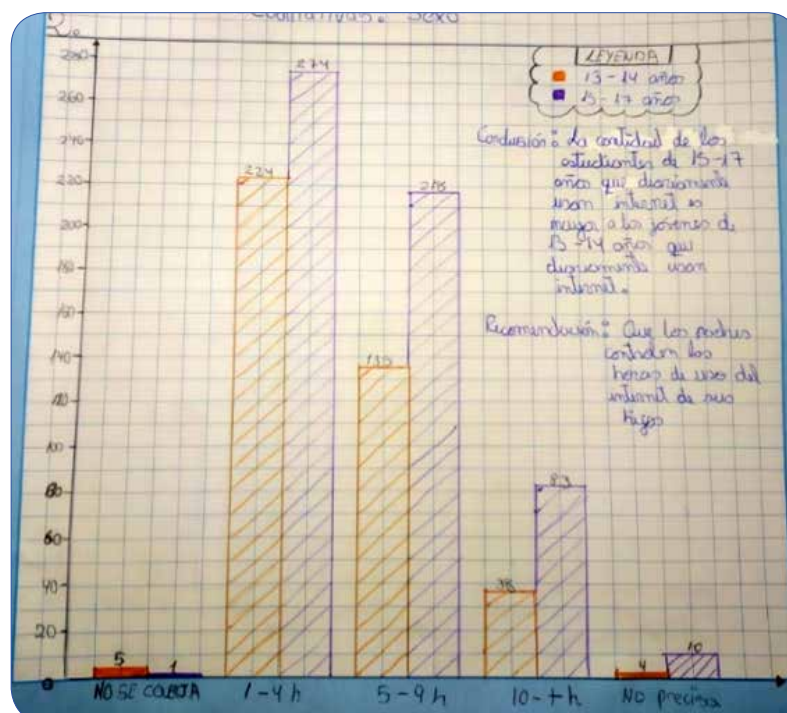 Cualitativas: Sexo
LEYENDA
13-14 años
15-17 años
Conclusión: La cantidad de los
estudiantes de 15-17
años que diariamente
usan internet es
mayor a los jóvenes de
13-14 años que
diariamente usan
internet.
Recomendación: Que los padres
controlen las
horas de uso del
internet de sus
hijos
280
260
240
220
200
180
160
140
120
100
80
60
40
20
0
5
1
224
274
38
83
4
10
NO SE CONECTA
1-4 h
5-9 h
10-+ h
NO precisa